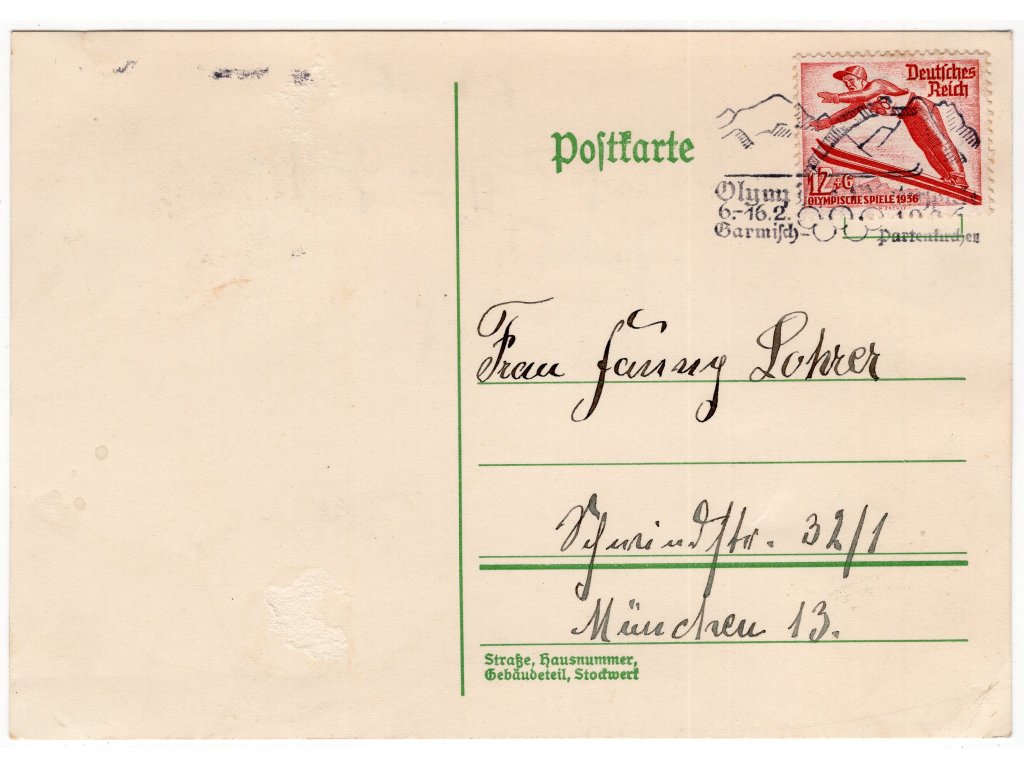 Deutsches
Reich
Postkarte
12+6
OLYMPISCHE SPIELE 1936
6.-16.2.
Garmisch-
Partenkirchen
Frau Fanny Lohrer
Schwindstr. 32/1
München 13.
Straße, Hausnummer,
Gebäudeteil, Stockwerk